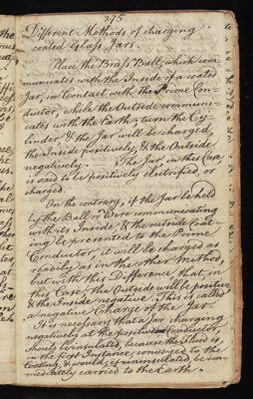 275.
Different Methods of charging
coated Glass Jars.
Place the Brass Ball, which com-
municates with the Inside of a coated
Jar, in Contact with the Prime Con-
ductor, while the Outside communi-
cates with the Earth; turn the Cy-
linder & the Jar will be charged,
the Inside positively, & the Outside
negatively. The Jar, in this Case,
is said to be positively electrified or
charged.
On the contrary, if the Jar be held
by the Ball or Wire communicating
with its Inside, & the outside Coat-
ing be presented to the Prime
Conductor, it will be charged as
readily as in the other Method,
but with this Difference, that in
this Case, the Outside will be positive,
& the Inside negative. This is called
a negative Charge of the Jar.
It is necessary that a Jar charging
negatively at the positive Conductor,
should be insulated, because the Fluid is,
in the first Instance, conveyed to the
Coating, & would, if uninsulated, be im-
mediately carried to the Earth.